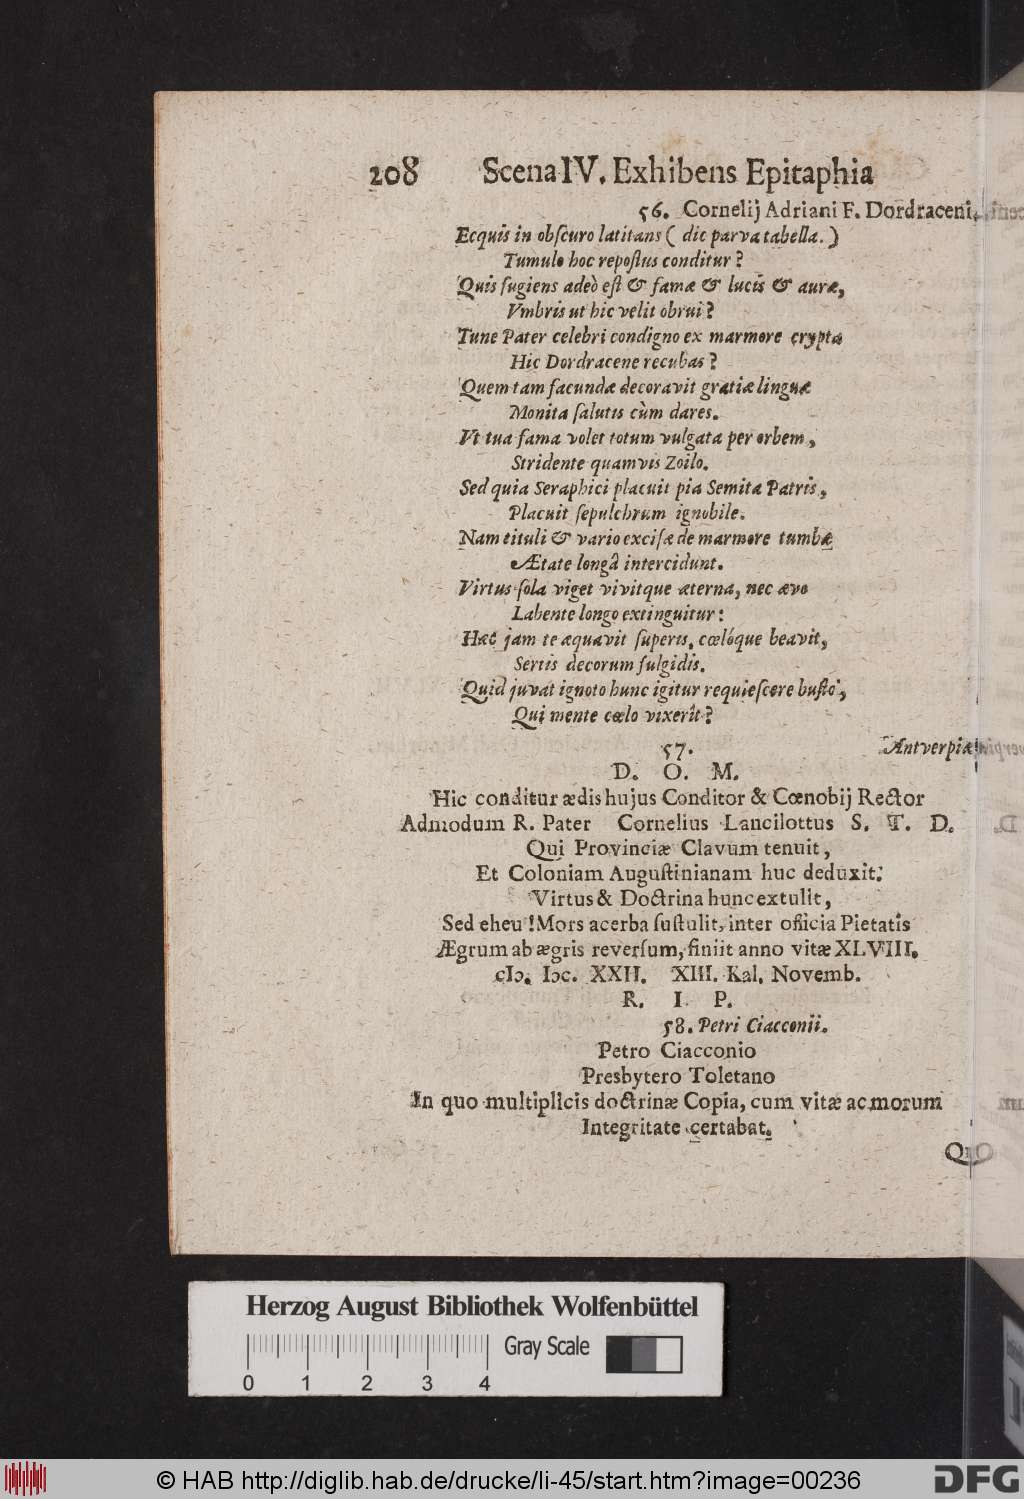 208 Scena IV. Exhibens Epitaphia
56. Cornelij Adriani F. Dordraceni.
Ecquis in obſcuro latitans ( dic parva tabella. )
Tumulo hoc repoſtus conditur ?
Quis fugiens adeò eſt & famæ & lucis & auræ,
Vmbris ut hic velit obrui ?
Tune Pater celebri condigno ex marmore cryptæ
Hic Dordracene recubas ?
Quem tam facundæ decoravit gratiæ linguæ
Monita ſalutis cùm dares.
Vt tua fama volet totum vulgata per orbem,
Stridente quamvis Zoilo.
Sed quia Seraphici placuit pia Semita Patris,
Placuit ſepulchrum ignobile.
Nam tituli & vario exciſæ de marmore tumbæ
Ætate longâ intercidunt.
Virtus ſola viget vivitque æterna, nec ævo
Labente longo extinguitur :
Hæc jam te æquavit ſuperis, cœlóque beavit,
Sertis decorum fulgidis.
Quid juvat ignoto hunc igitur requieſcere buſto,
Qui mente cœlo vixerit ?
57. Antverpiæ
D. O. M.
Hic conditur ædis hujus Conditor & Cœnobij Rector
Admodum R. Pater Cornelius Lancilottus S. T. D.
Qui Provinciæ Clavum tenuit,
Et Coloniam Auguſtinianam huc deduxit:
Virtus & Doctrina hunc extulit,
Sed eheu ! Mors acerba ſuſtulit, inter officia Pietatis
Ægrum ab ægris reverſum, finiit anno vitæ XLVIII.
cIↄ. Iↄc. XXII. XIII. Kal. Novemb.
R. I. P.
58. Petri Ciacconii.
Petro Ciacconio
Presbytero Toletano
In quo multiplicis doctrinæ Copia, cum vitæ ac morum
Integritate certabat.
Herzog August Bibliothek Wolfenbüttel
Gray Scale
0 1 2 3 4
© HAB http://diglib.hab.de/drucke/li-45/start.htm?image=00236
DFG